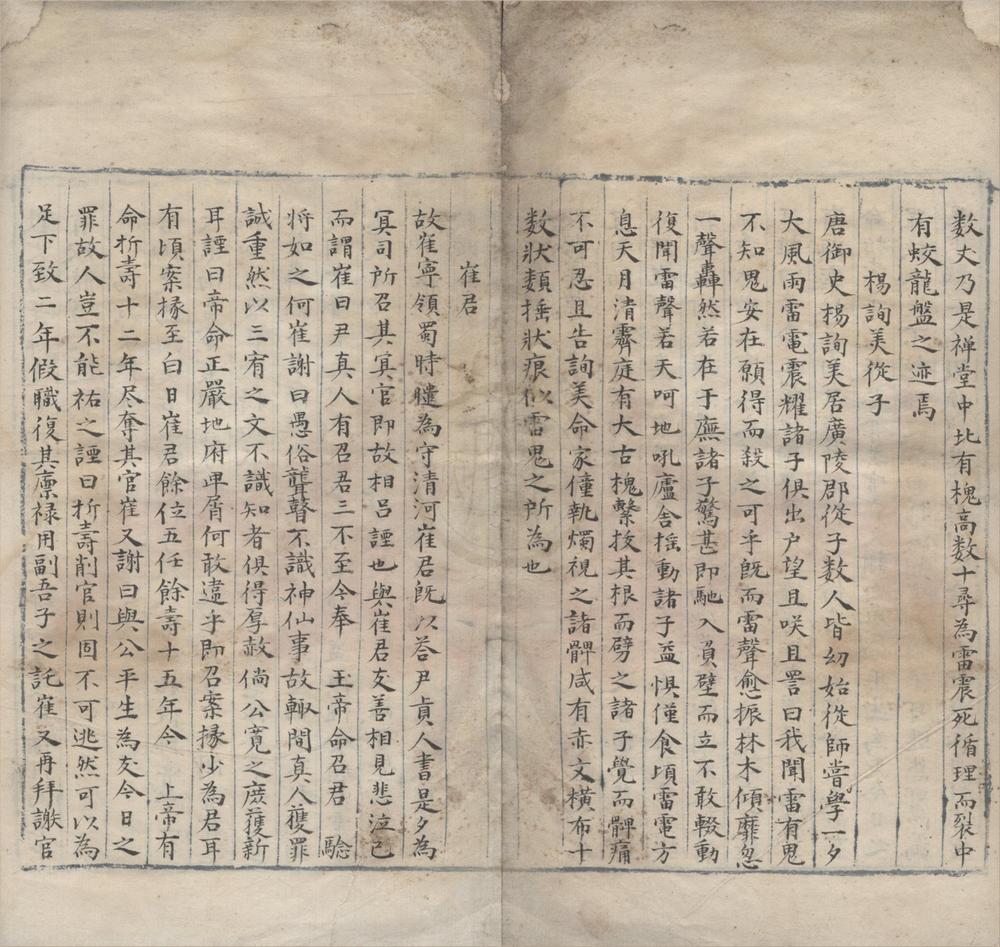 数丈乃是禅堂中北有槐高数十尋為雷震死循理而裂中
有蛟龍盤之迹焉
楊詢美從子
唐御史楊詢美居廣陵郡從子数人皆幼始從師嘗學一夕
大風雨雷電震耀諸子俱出户望且咲且詈曰我聞雷有鬼
不知鬼安在願得而殺之可乎既而雷聲愈振林木傾靡忽
一聲轟然若在于廡諸子驚甚即馳入負壁而立不敢輟動
復聞雷聲若天呵地吼廬舍揺動諸子益惧僅食頃雷電方
息天月清霽庭有大古槐擊抜其根而劈之諸子覺而髀痛
不可忍且告詢美命家僮執燭視之諸髀咸有赤文横布十
数狀類捶狀痕似雷鬼之所為也
崔君
故崔寧領蜀時犍為守清河崔君既以荅尹真人書是夕為
冥司所召其冥官即故相吕諲也與崔君友善相見悲泣已
而謂崔曰尹真人有召君三不至今奉 王帝命召君 驗
将如之何崔謝曰愚俗聾瞽不識神仙事故輙間真人獲罪
誠重然以三宥之文不識知者俱得厚赦倘公寛之庻獲新
耳諲曰帝命正嚴地府卑屑何敢違乎即召案掾少為君耳
有頃案掾至白曰崔君餘位五任餘壽十五年今 上帝有
命折壽十二年尽奪其官崔又謝曰與公平生為友今日之
罪故人豈不能祐之諲曰折壽削官則固不可逃然可以為
足下致二年假職復其廪禄用副吾子之託崔又再拜謝官